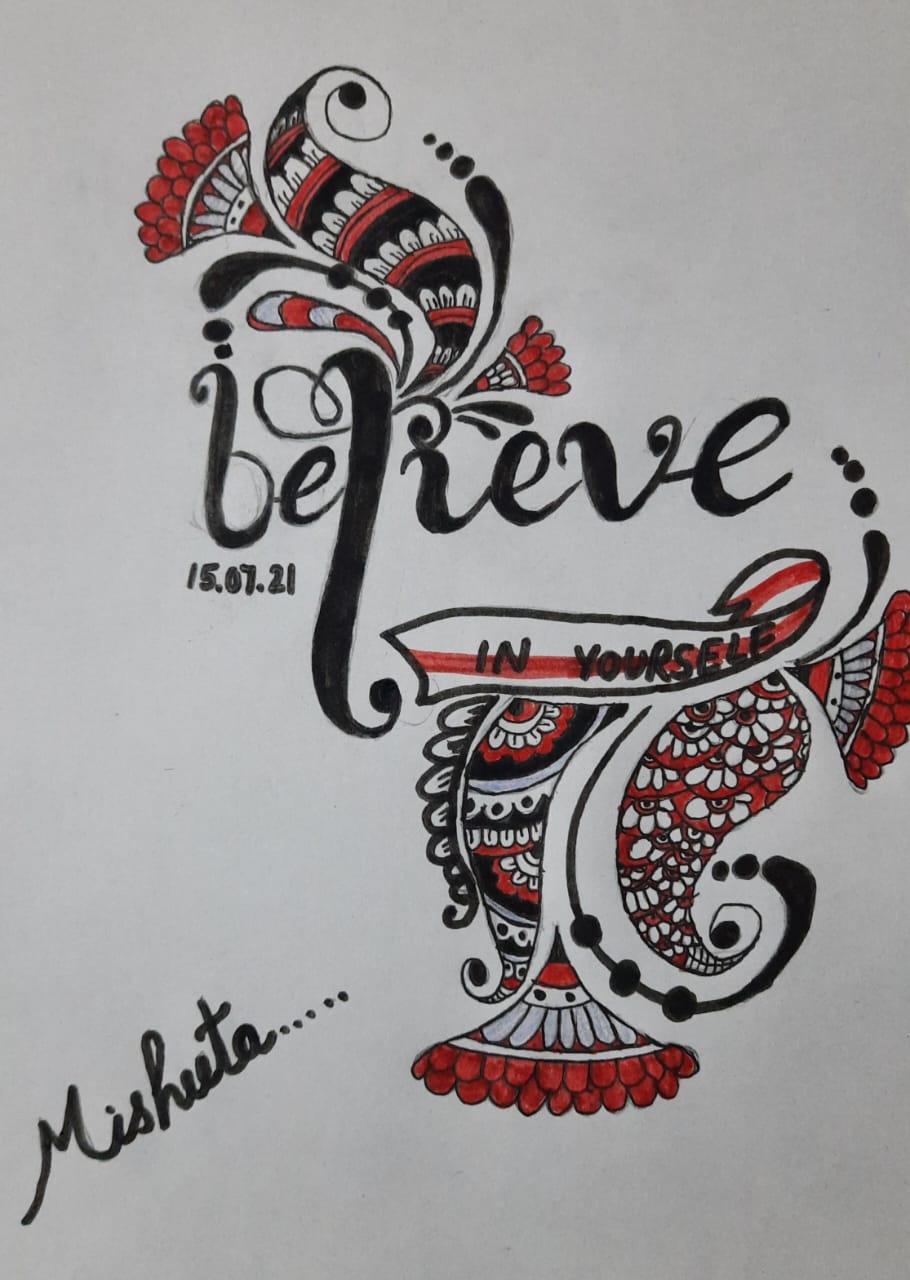 believe
15.07.21
IN YOURSELF
Mishuta.....